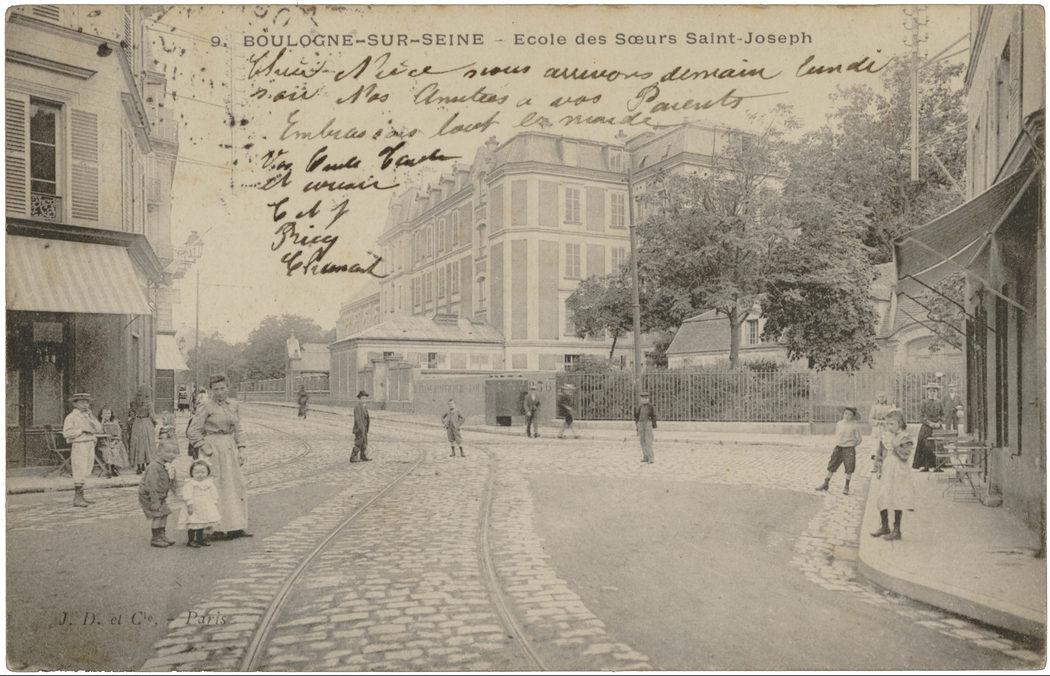 9. BOULOGNE-SUR-SEINE - Ecole des Sœurs Saint-Joseph
Nièce nous arrivons demain lundi
soir Nos Amitiés a vos Parents
Embrassons tout le monde
Vos Oncle Tante
et cousin
J. D. et Cie. - Paris